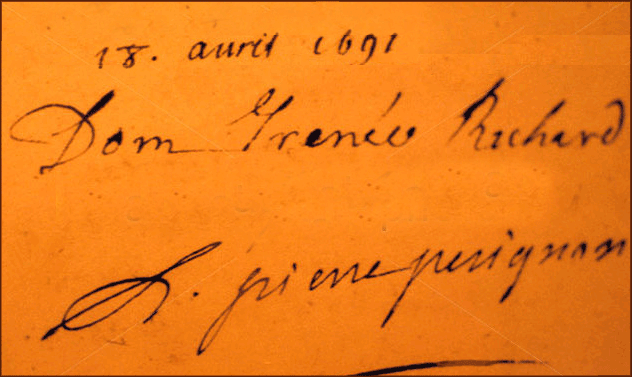 18. avril 1691
Dom Irenée Richard
f. pierre perignon